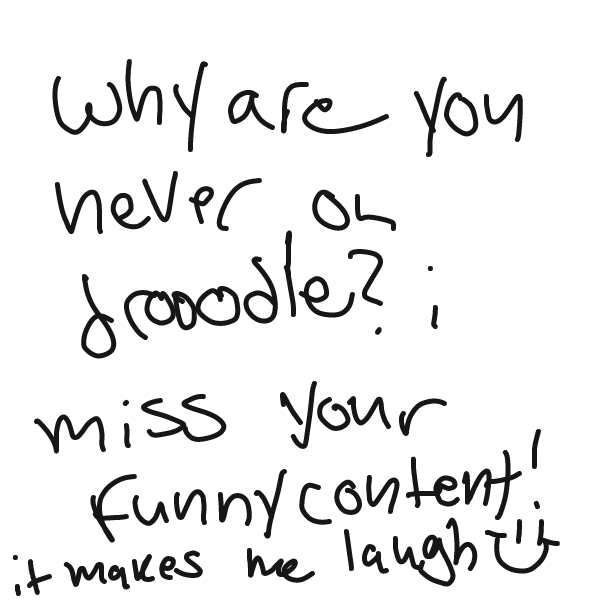 why are you
never on
drooodle? i
miss your
funny content!
it makes me laugh